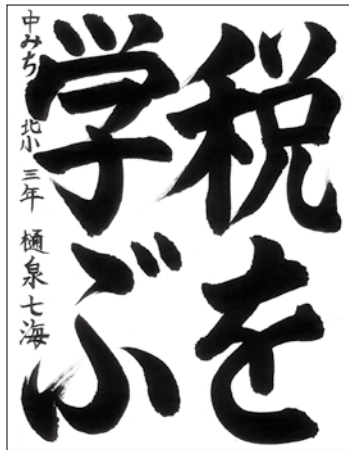 税を
学ぶ
中みち 北小 三年 樋泉七海